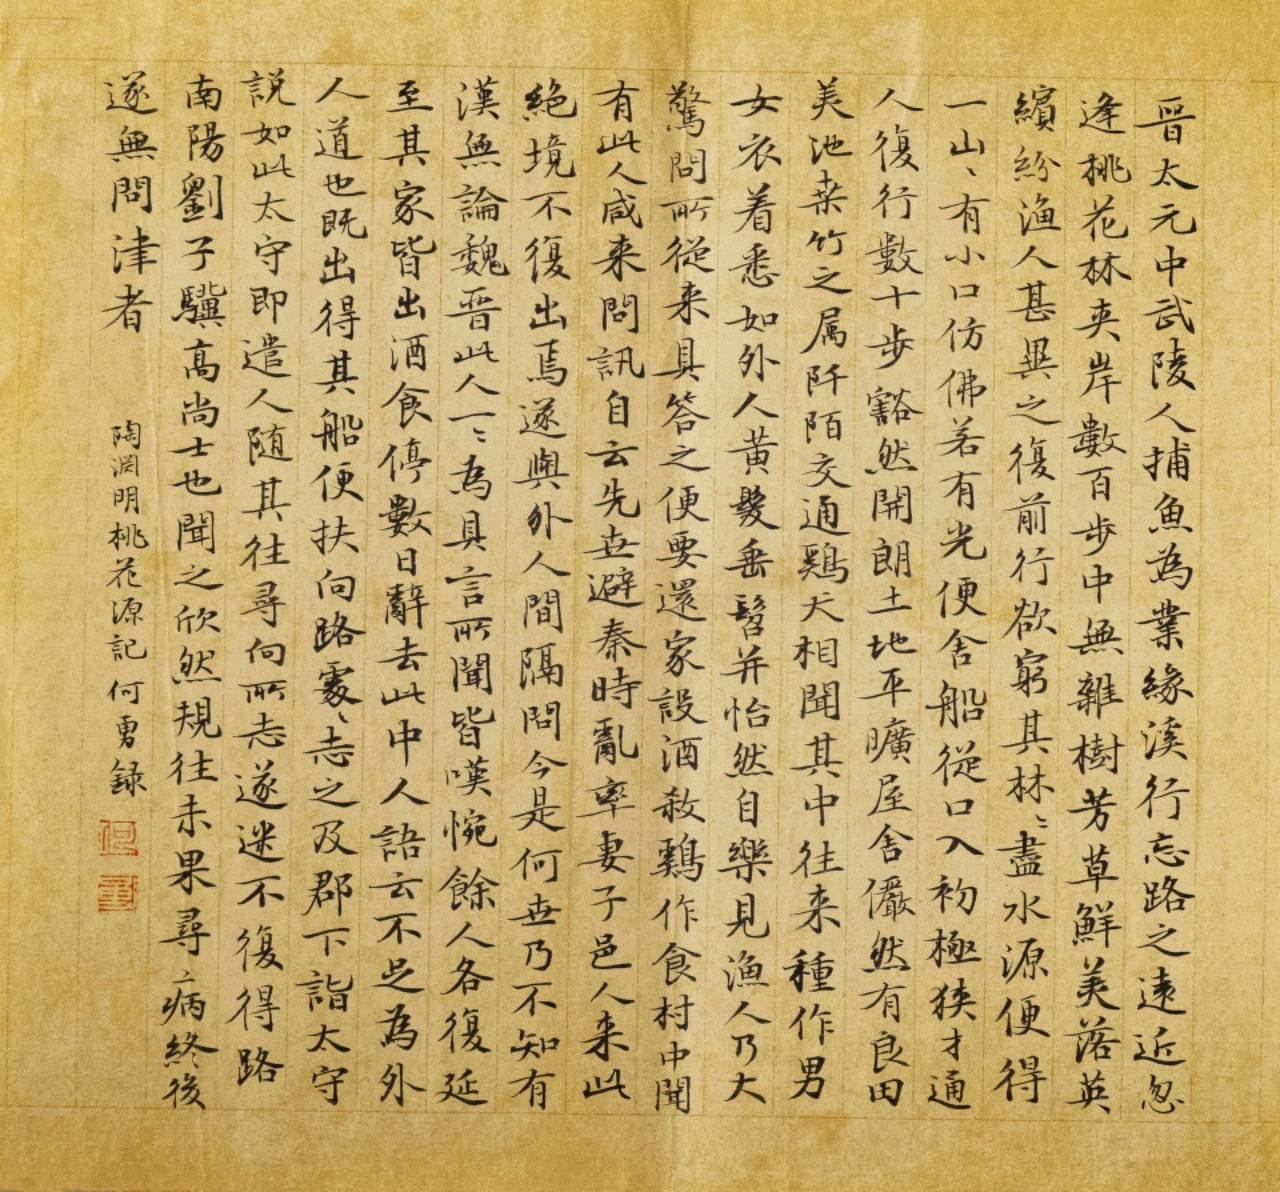 晋太元中武陵人捕魚為業緣溪行忘路之遠近忽
逢桃花林夾岸數百步中無雜樹芳草鮮美落英
繽紛漁人甚異之復前行欲窮其林〻盡水源便得
一山〻有小口仿佛若有光便舍船從口入初極狹才通
人復行數十步豁然開朗土地平曠屋舍儼然有良田
美池桒竹之属阡陌交通鷄犬相聞其中往来種作男
女衣着悉如外人黄髮垂髫并怡然自樂見漁人乃大
驚問所從来具答之便要還家設酒殺鷄作食村中聞
有此人咸来問訊自云先世避秦時亂率妻子邑人来此
絕境不復出焉遂與外人間隔問今是何世乃不知有
漢無論魏晋此人一〻為具言所聞皆嘆惋餘人各復延
至其家皆出酒食停數日辭去此中人語云不足為外
人道也既出得其船便扶向路處〻志之及郡下詣太守
説如此太守即遣人随其往尋向所志遂迷不復得路
南陽劉子驥髙尚士也聞之欣然規往未果尋病終後
遂無問津者
陶渊明桃花源記 何勇録
何
勇